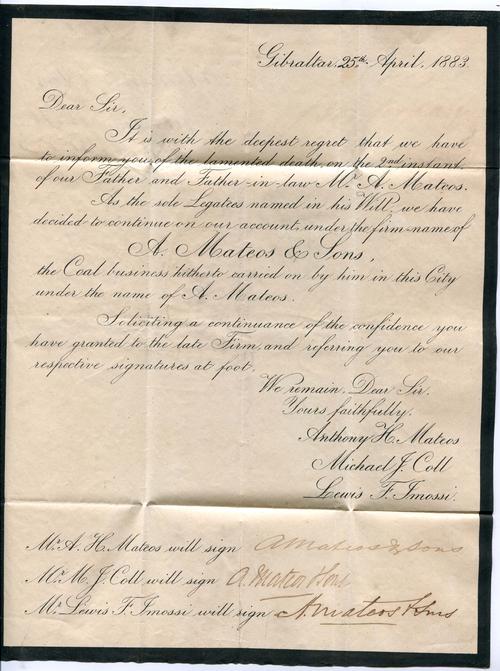 Gibraltar, 25th April, 1883.
Dear Sir,
It is with the deepest regret that we have
to inform you, of the lamented death, on the 2nd instant,
of our Father and Father-in-law Mr. A. Mateos.
As the sole Legatees named in his Will, we have
decided to continue on our account, under the firm-name of
A. Mateos & Sons,
the Coal business hitherto carried on by him in this City
under the name of A. Mateos.
Soliciting a continuance of the confidence you
have granted to the late Firm, and referring you to our
respective signatures at foot.
We remain, Dear Sir,
Yours faithfully,
Anthony H. Mateos
Michael J. Coll
Lewis F. Imossi.
Mr. A. H. Mateos will sign A Mateos & Sons
Mr. M. J. Coll will sign A. Mateos & Sons
Mr. Lewis F. Imossi will sign A. Mateos & Sons